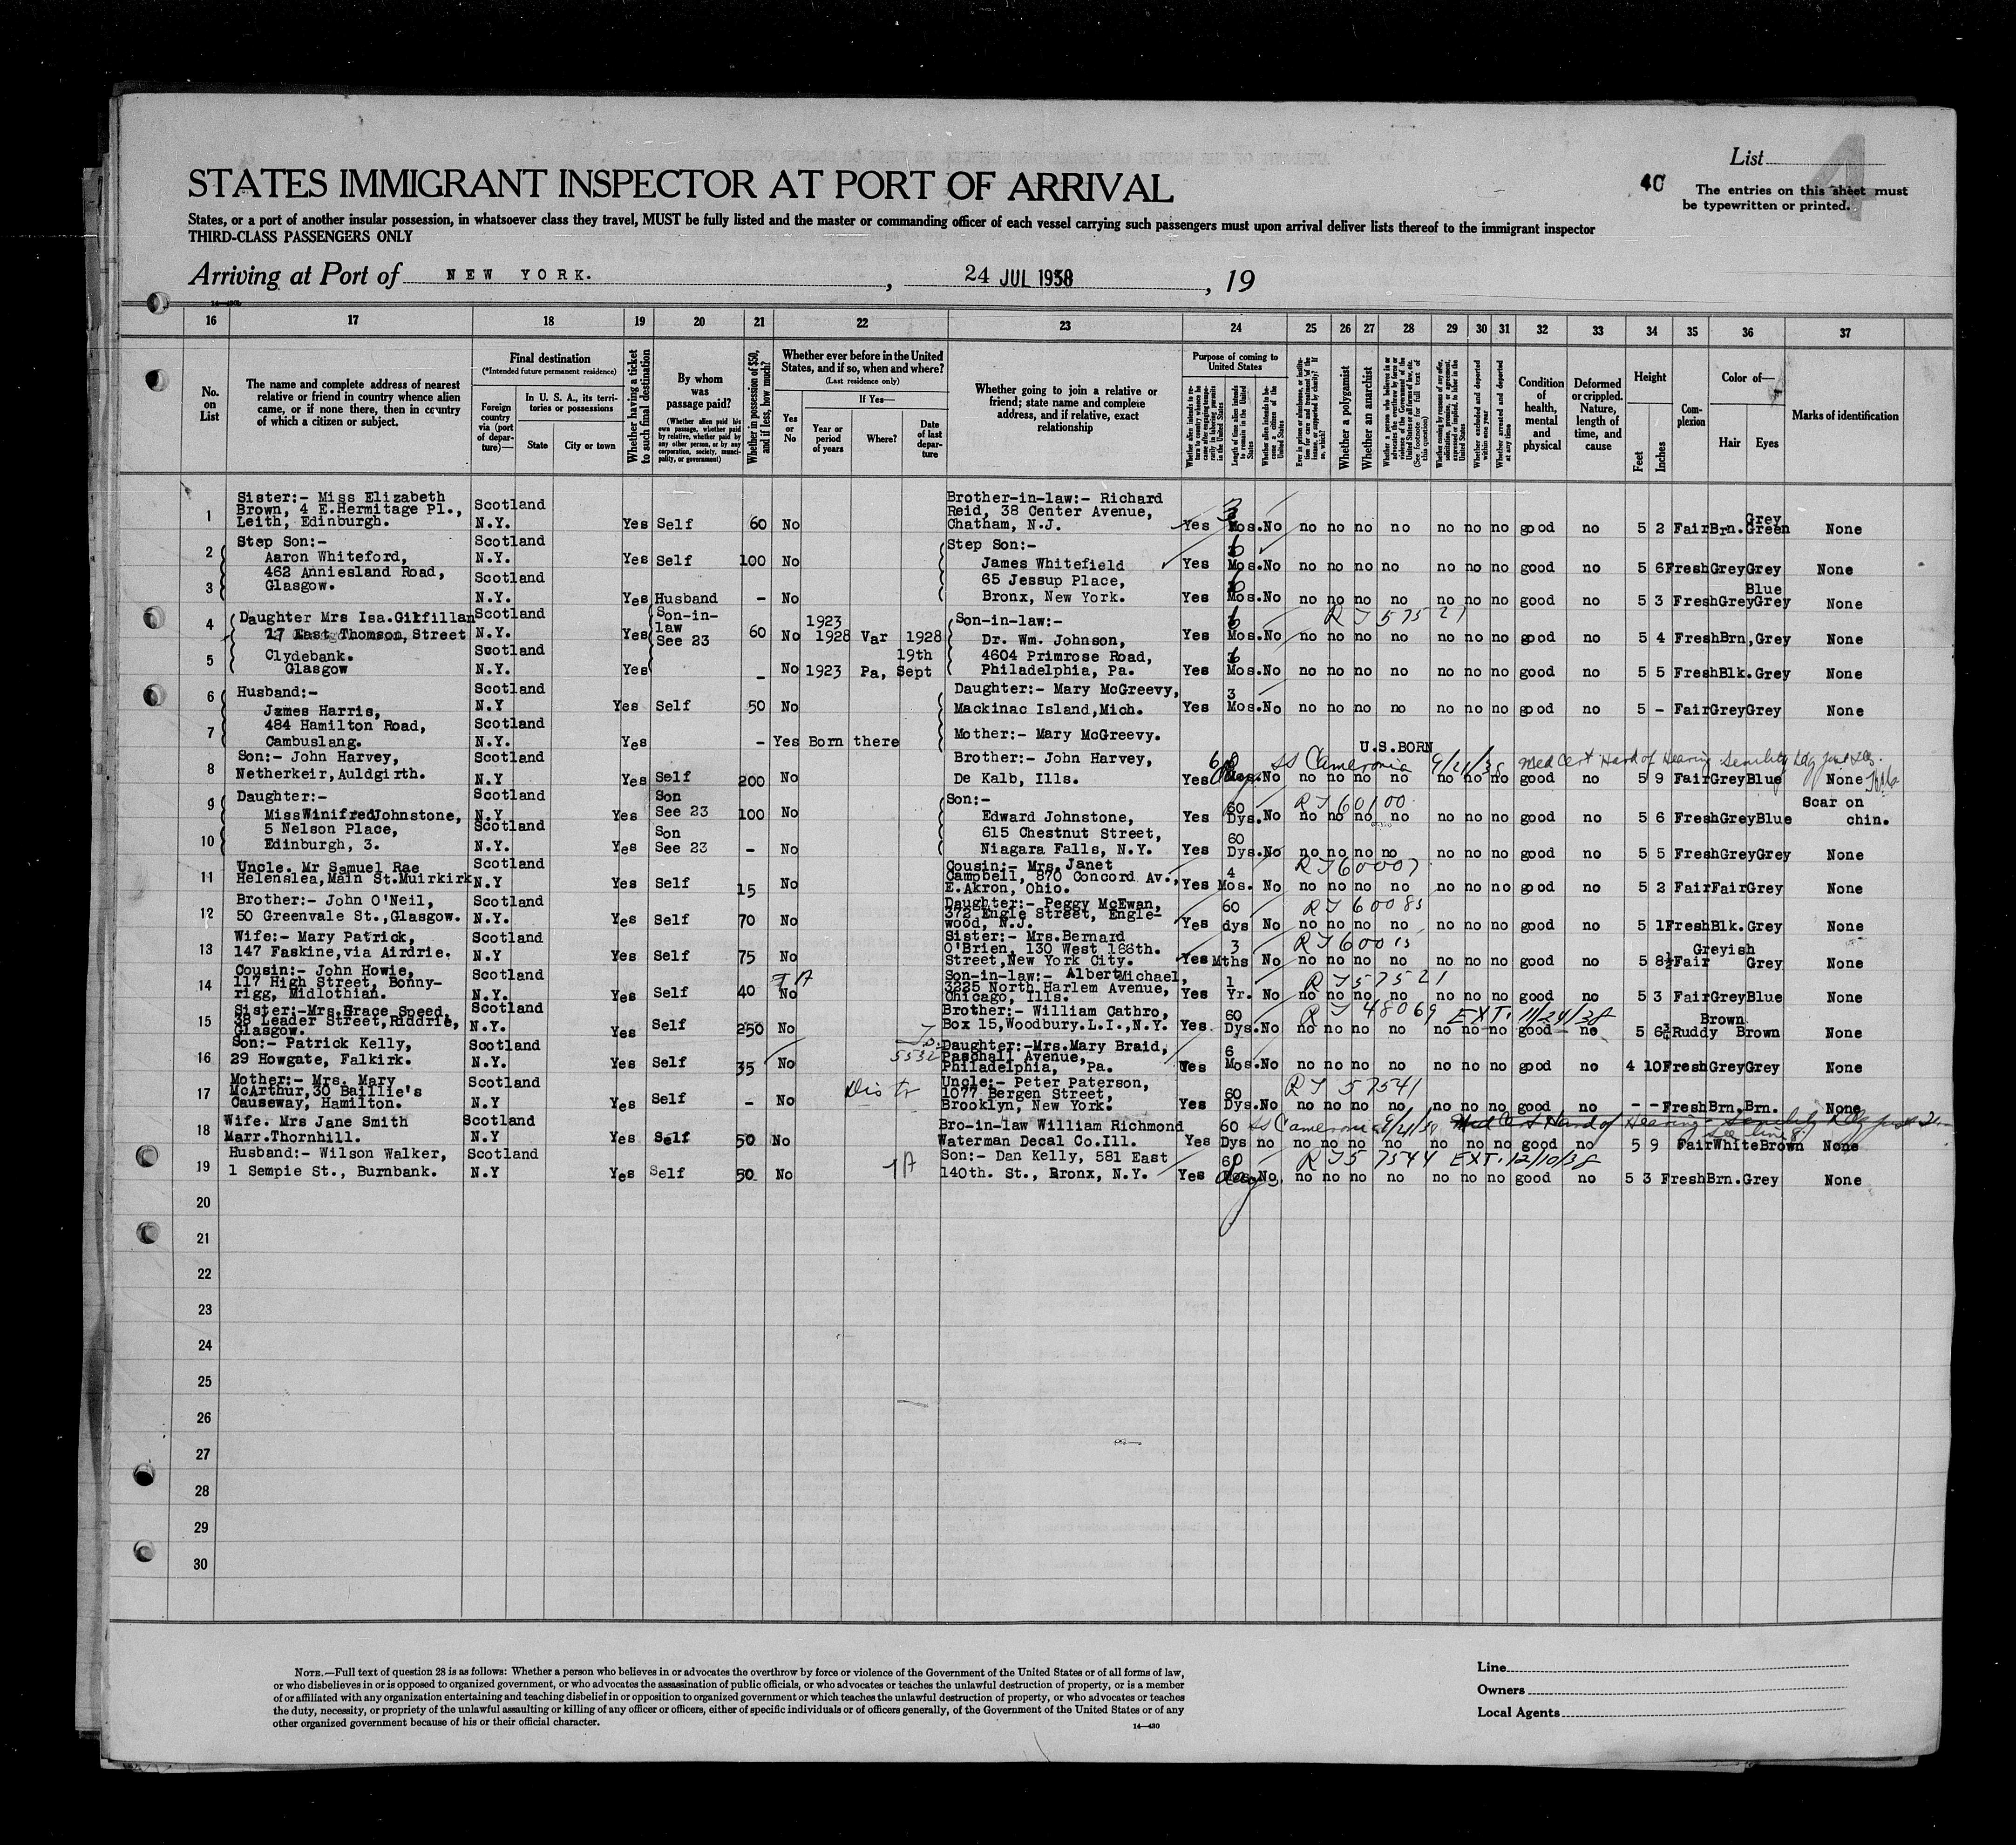 List
4
40
The entries on this sheet must
be typewritten or printed.
STATES IMMIGRANT INSPECTOR AT PORT OF ARRIVAL
States, or a port of another insular possession, in whatsoever class they travel, MUST be fully listed and the master or commanding officer of each vessel carrying such passengers must upon arrival deliver lists thereof to the immigrant inspector
THIRD-CLASS PASSENGERS ONLY
Arriving at Port of NEW YORK. , 24 JUL 1938 , 19
16 17 18 19 20 21 22 23 24 25 26 27 28 29 30 31 32 33 34 35 36 37
No. on List
The name and complete address of nearest relative or friend in country whence alien came, or if none there, then in country of which a citizen or subject.
Final destination
(*Intended future permanent residence)
Foreign country via (port of departure)—
In U. S. A., its territories or possessions
State
City or town
Whether having a ticket to such final destination
By whom was passage paid?
(Whether alien paid his own passage, whether paid by relative, whether paid by any other person, or by any corporation, society, municipality, or government)
Whether in possession of $50, and if less, how much?
Whether ever before in the United States, and if so, when and where?
(Last residence only)
Yes or No
If Yes—
Year or period of years
Where?
Date of last departure
Whether going to join a relative or friend; state name and complete address, and if relative, exact relationship
Purpose of coming to United States
Whether a polygamist
Whether an anarchist
Condition of health, mental and physical
Deformed or crippled. Nature, length of time, and cause
Height
Feet
Inches
Complexion
Color of—
Hair
Eyes
Marks of identification
1 Sister:- Miss Elizabeth Brown, 4 E.Hermitage Pl., Leith, Edinburgh. Scotland N.Y. Yes Self 60 No Brother-in-law:- Richard Reid, 38 Center Avenue, Chatham, N.J. Yes 3 Mos. No no no no no no no no good no 5 2 Fair Brn. Grey Green None
2 Step Son:- Aaron Whiteford, Scotland N.Y. Yes Self 100 No Step Son:- James Whitefield Yes Mos. No no no no no no no no good no 5 6 Fresh Grey Grey None
3 462 Anniesland Road, Glasgow. Scotland N.Y. Yes Husband – No 65 Jessup Place, Bronx, New York. Yes Mos. No no no no no no no no good no 5 3 Fresh Grey Blue Grey None
4 Daughter Mrs Isa.Gilfillan 17 East Thomson Street Scotland N.Y. Yes Son-in-law See 23 60 No 1923 1928 Var 1928 Son-in-law:- Dr. Wm. Johnson, Yes Mos. No RT 57527 no no no no no no no good no 5 4 Fresh Brn, Grey None
5 Clydebank. Glasgow Scotland N.Y. Yes – No 1923 Pa, 19th Sept 4604 Primrose Road, Philadelphia, Pa. Yes Mos. No no no no no no no no good no 5 5 Fresh Blk. Grey None
6 Husband:- James Harris, Scotland N.Y Yes Self 50 No Daughter:- Mary McGreevy, Mackinac Island,Mich. Yes 3 Mos. No no no no no no no no good no 5 – Fair Grey Grey None
7 484 Hamilton Road, Cambuslang. Scotland N.Y. Yes – Yes Born there Mother:- Mary McGreevy. U.S.BORN
8 Son:- John Harvey, Netherkeir,Auldgirth. Scotland N.Y Yes Self 200 No Brother:- John Harvey, De Kalb, Ills. Yes 60 Days No SS Cameronia 9/21/38 Med Cert Hard of Hearing Senility no no no no no no no good no 5 9 Fair Grey Blue None
9 Daughter:- Miss Winifred Johnstone, Scotland N.Y. Yes Son See 23 100 No Son:- Edward Johnstone, Yes 60 Dys. No RT 60100 no no no no no no no good no 5 6 Fresh Grey Blue Scar on chin.
10 5 Nelson Place, Edinburgh, 3. Scotland N.Y. Yes Son See 23 – No 615 Chestnut Street, Niagara Falls, N.Y. Yes 60 Dys. No no no no no no no no good no 5 5 Fresh Grey Grey None
11 Uncle. Mr Samuel Rae Helenslea,Main St.Muirkirk Scotland N.Y Yes Self 15 No Cousin:- Mrs. Janet Campbell, 870 Concord Av., E.Akron, Ohio. Yes 4 Mos. No RT 60007 no no no no no no no good no 5 2 Fair Fair Grey None
12 Brother:- John O'Neil, 50 Greenvale St.,Glasgow. Scotland N.Y. Yes Self 70 No Daughter:- Peggy McEwan, 372 Engle Street, Englewood, N.J. Yes 60 dys No RT 60085 no no no no no no no good no 5 1 Fresh Blk. Grey None
13 Wife:- Mary Patrick, 147 Faskine,via Airdrie. Scotland N.Y Yes Self 75 No Sister:- Mrs.Bernard O'Brien, 130 West 166th. Street,New York City. Yes 3 Mths No RT 60015 no no no no no no no good no 5 8½ Fair Greyish Grey None
14 Cousin:- John Howie, 117 High Street, Bonnyrigg, Midlothian. Scotland N.Y. Yes Self 40 TA No Son-in-law:- Albert Michael, 3225 North Harlem Avenue, Chicago, Ills. Yes 1 Yr. No RT 57521 no no no no no no no good no 5 3 Fair Grey Blue None
15 Sister:-Mrs.Grace Speed, 38 Leader Street,Riddrie, Glasgow. Scotland N.Y. Yes Self 250 No Brother:- William Cathro, Box 15,Woodbury.L.I.,N.Y. Yes 60 Dys. No RT 48069 EXT. 11/24/38 no no no no no no no good no 5 6½ Ruddy Brown Brown None
16 Son:- Patrick Kelly, 29 Howgate, Falkirk. Scotland N.Y. Yes Self 35 No 5532 Daughter:-Mrs.Mary Braid, Paschall Avenue, Philadelphia, Pa. Yes 6 Mos. No no no no no no no no good no 4 10 Fresh Grey Grey None
17 Mother:- Mrs. Mary McArthur,30 Baillie's Causeway, Hamilton. Scotland N.Y Yes Self – No Uncle:- Peter Paterson, 1077 Bergen Street, Brooklyn, New York. Yes 60 Dys. No RT 57541 no no no no no no no good no – – Fresh Brn. Brn. None
18 Wife. Mrs Jane Smith Marr.Thornhill. Scotland N.Y Yes Self 50 No Bro-in-law William Richmond Waterman Decal Co.Ill. Yes 60 Dys no SS Cameronia 9/21/38 Med Cert Hard of Hearing Senility See line 8 no no no no no no no good no 5 9 Fair White Brown None
19 Husband:- Wilson Walker, 1 Sempie St., Burnbank. Scotland N.Y Yes Self 50 No TA Son:- Dan Kelly, 581 East 140th. St., Bronx, N.Y. Yes 60 days No RT 57544 EXT. 12/10/38 no no no no no no no good no 5 3 Fresh Brn. Grey None
20
21
22
23
24
25
26
27
28
29
30
NOTE.—Full text of question 28 is as follows: Whether a person who believes in or advocates the overthrow by force or violence of the Government of the United States or of all forms of law,
or who disbelieves in or is opposed to organized government, or who advocates the assassination of public officials, or who advocates or teaches the unlawful destruction of property, or is a member
of or affiliated with any organization entertaining and teaching disbelief in or opposition to organized government or which teaches the unlawful destruction of property, or who advocates or teaches
the duty, necessity, or propriety of the unlawful assaulting or killing of any officer or officers, either of specific individuals or of officers generally, of the Government of the United States or of any
other organized government because of his or their official character.
14—430
Line
Owners
Local Agents